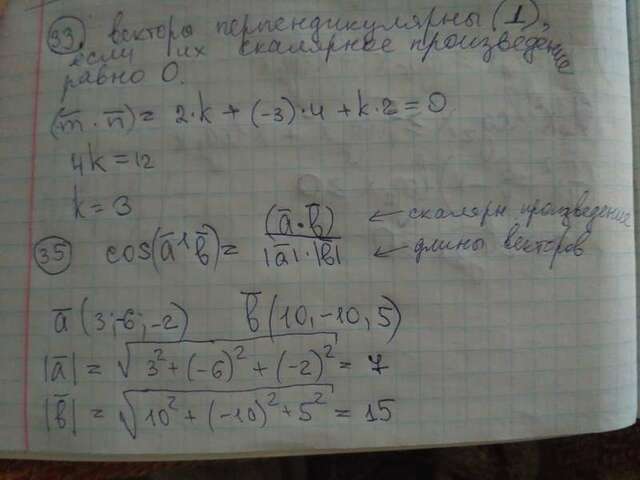 33. векторы перпендикулярны (⊥),
если их скалярное произведение
равно 0.
(m̅ · n̅) = 2·k + (-3)·4 + k·2 = 0
4k = 12
k = 3
35 cos(a̅^b̅) = (a̅·b̅) / |a̅|·|b̅| ← скалярн произведение
← длины векторов
a̅ (3;-6;-2) b̅ (10,-10,5)
|a̅| = √(3² + (-6)² + (-2)²) = 7
|b̅| = √(10² + (-10)² + 5²) = 15